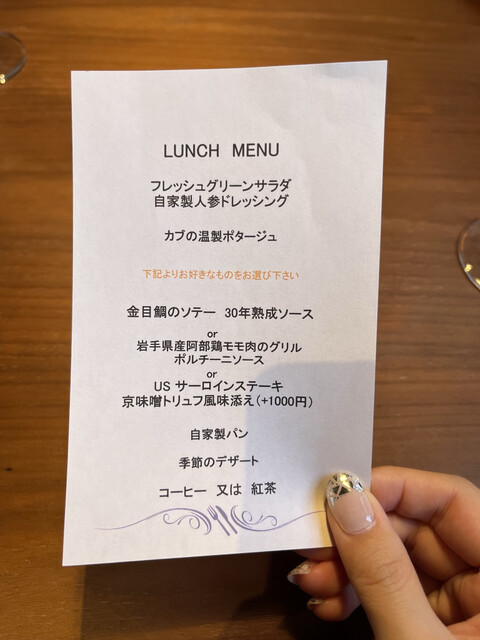 LUNCH MENU
フレッシュグリーンサラダ
自家製人参ドレッシング
カブの温製ポタージュ
下記よりお好きなものをお選び下さい
金目鯛のソテー 30年熟成ソース
or
岩手県産阿部鶏モモ肉のグリル
ポルチーニソース
or
US サーロインステーキ
京味噌トリュフ風味添え(+1000円)
自家製パン
季節のデザート
コーヒー 又は 紅茶